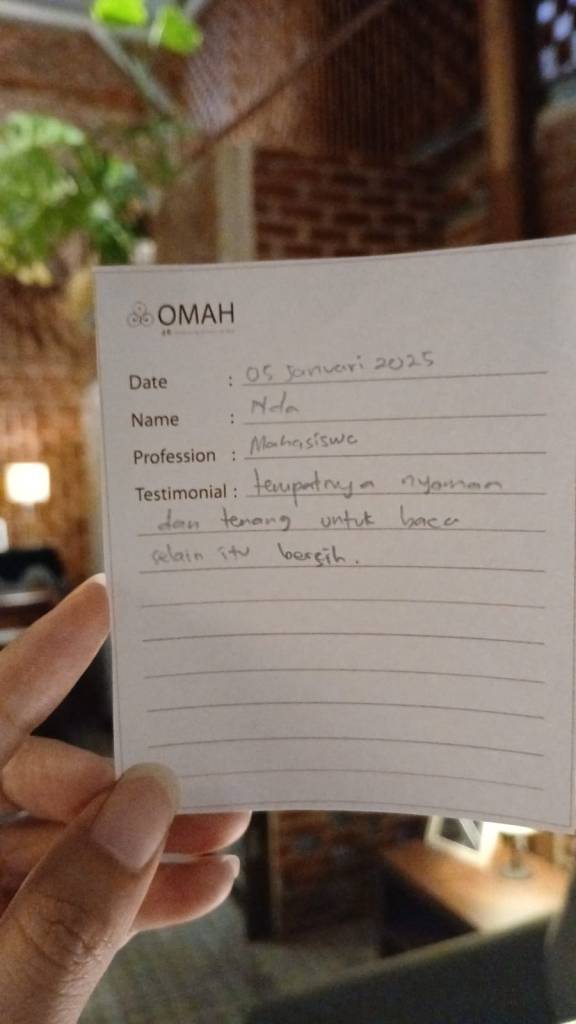 OMAH
Date : 05 Januari 2025
Name : Nda
Profession : Mahasiswa
Testimonial : tempatnya nyaman
dan tenang untuk baca
selain itu bersih.